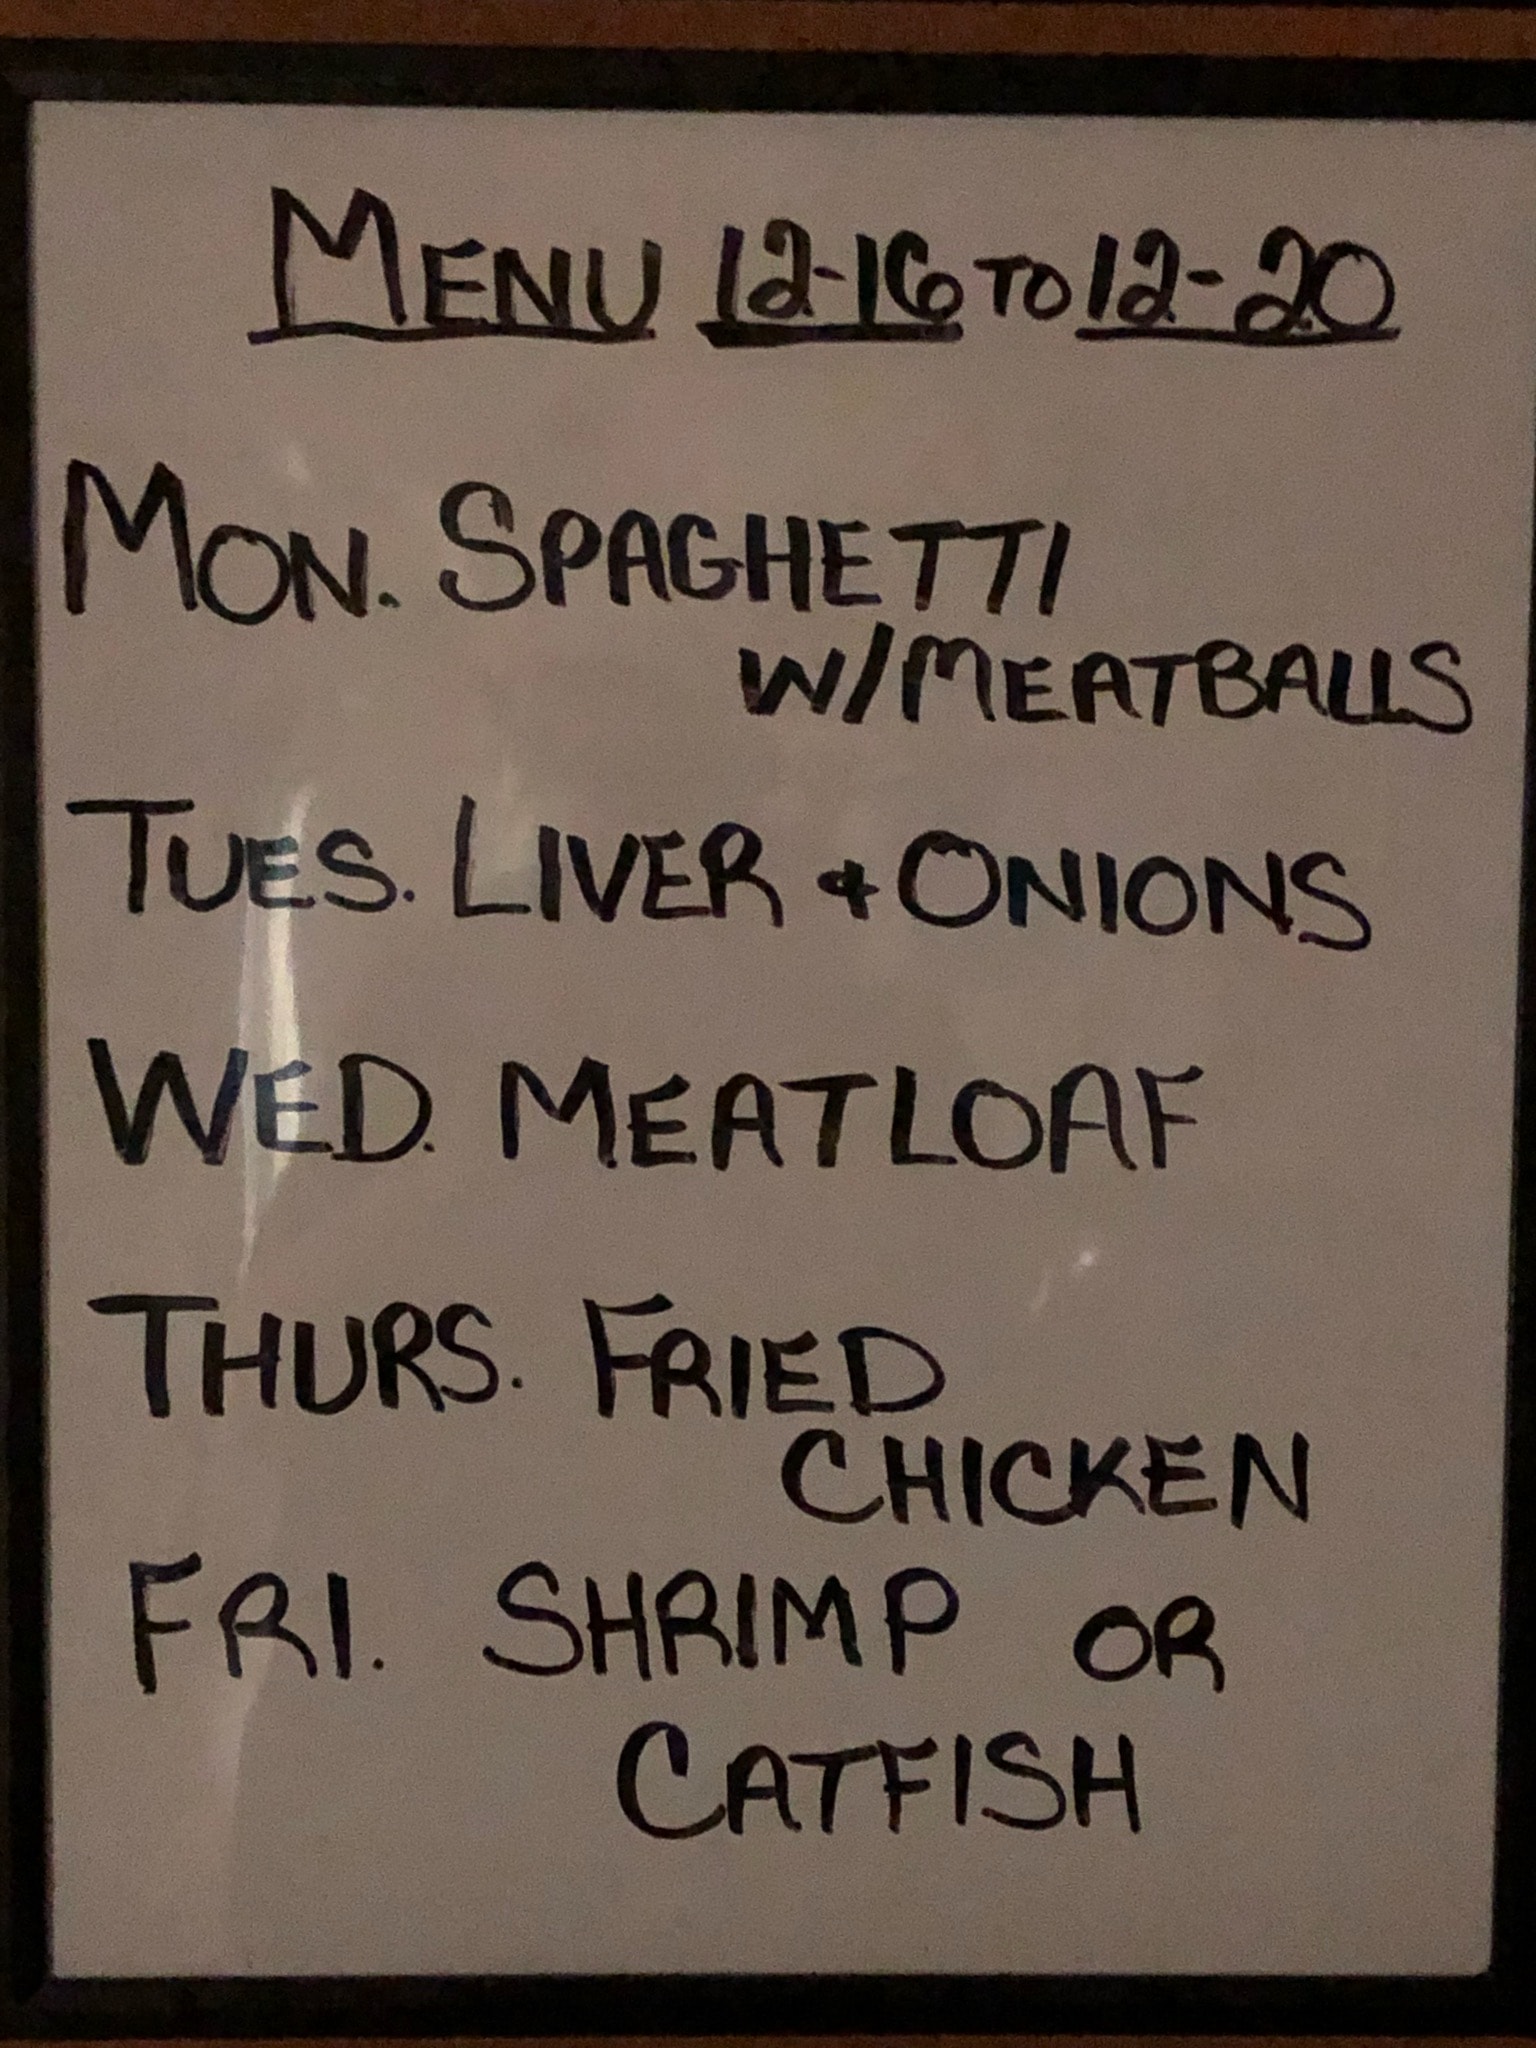 MENU 12-16 TO 12-20
MON. SPAGHETTI
W/MEATBALLS
TUES. LIVER & ONIONS
WED. MEATLOAF
THURS. FRIED
CHICKEN
FRI. SHRIMP OR
CATFISH